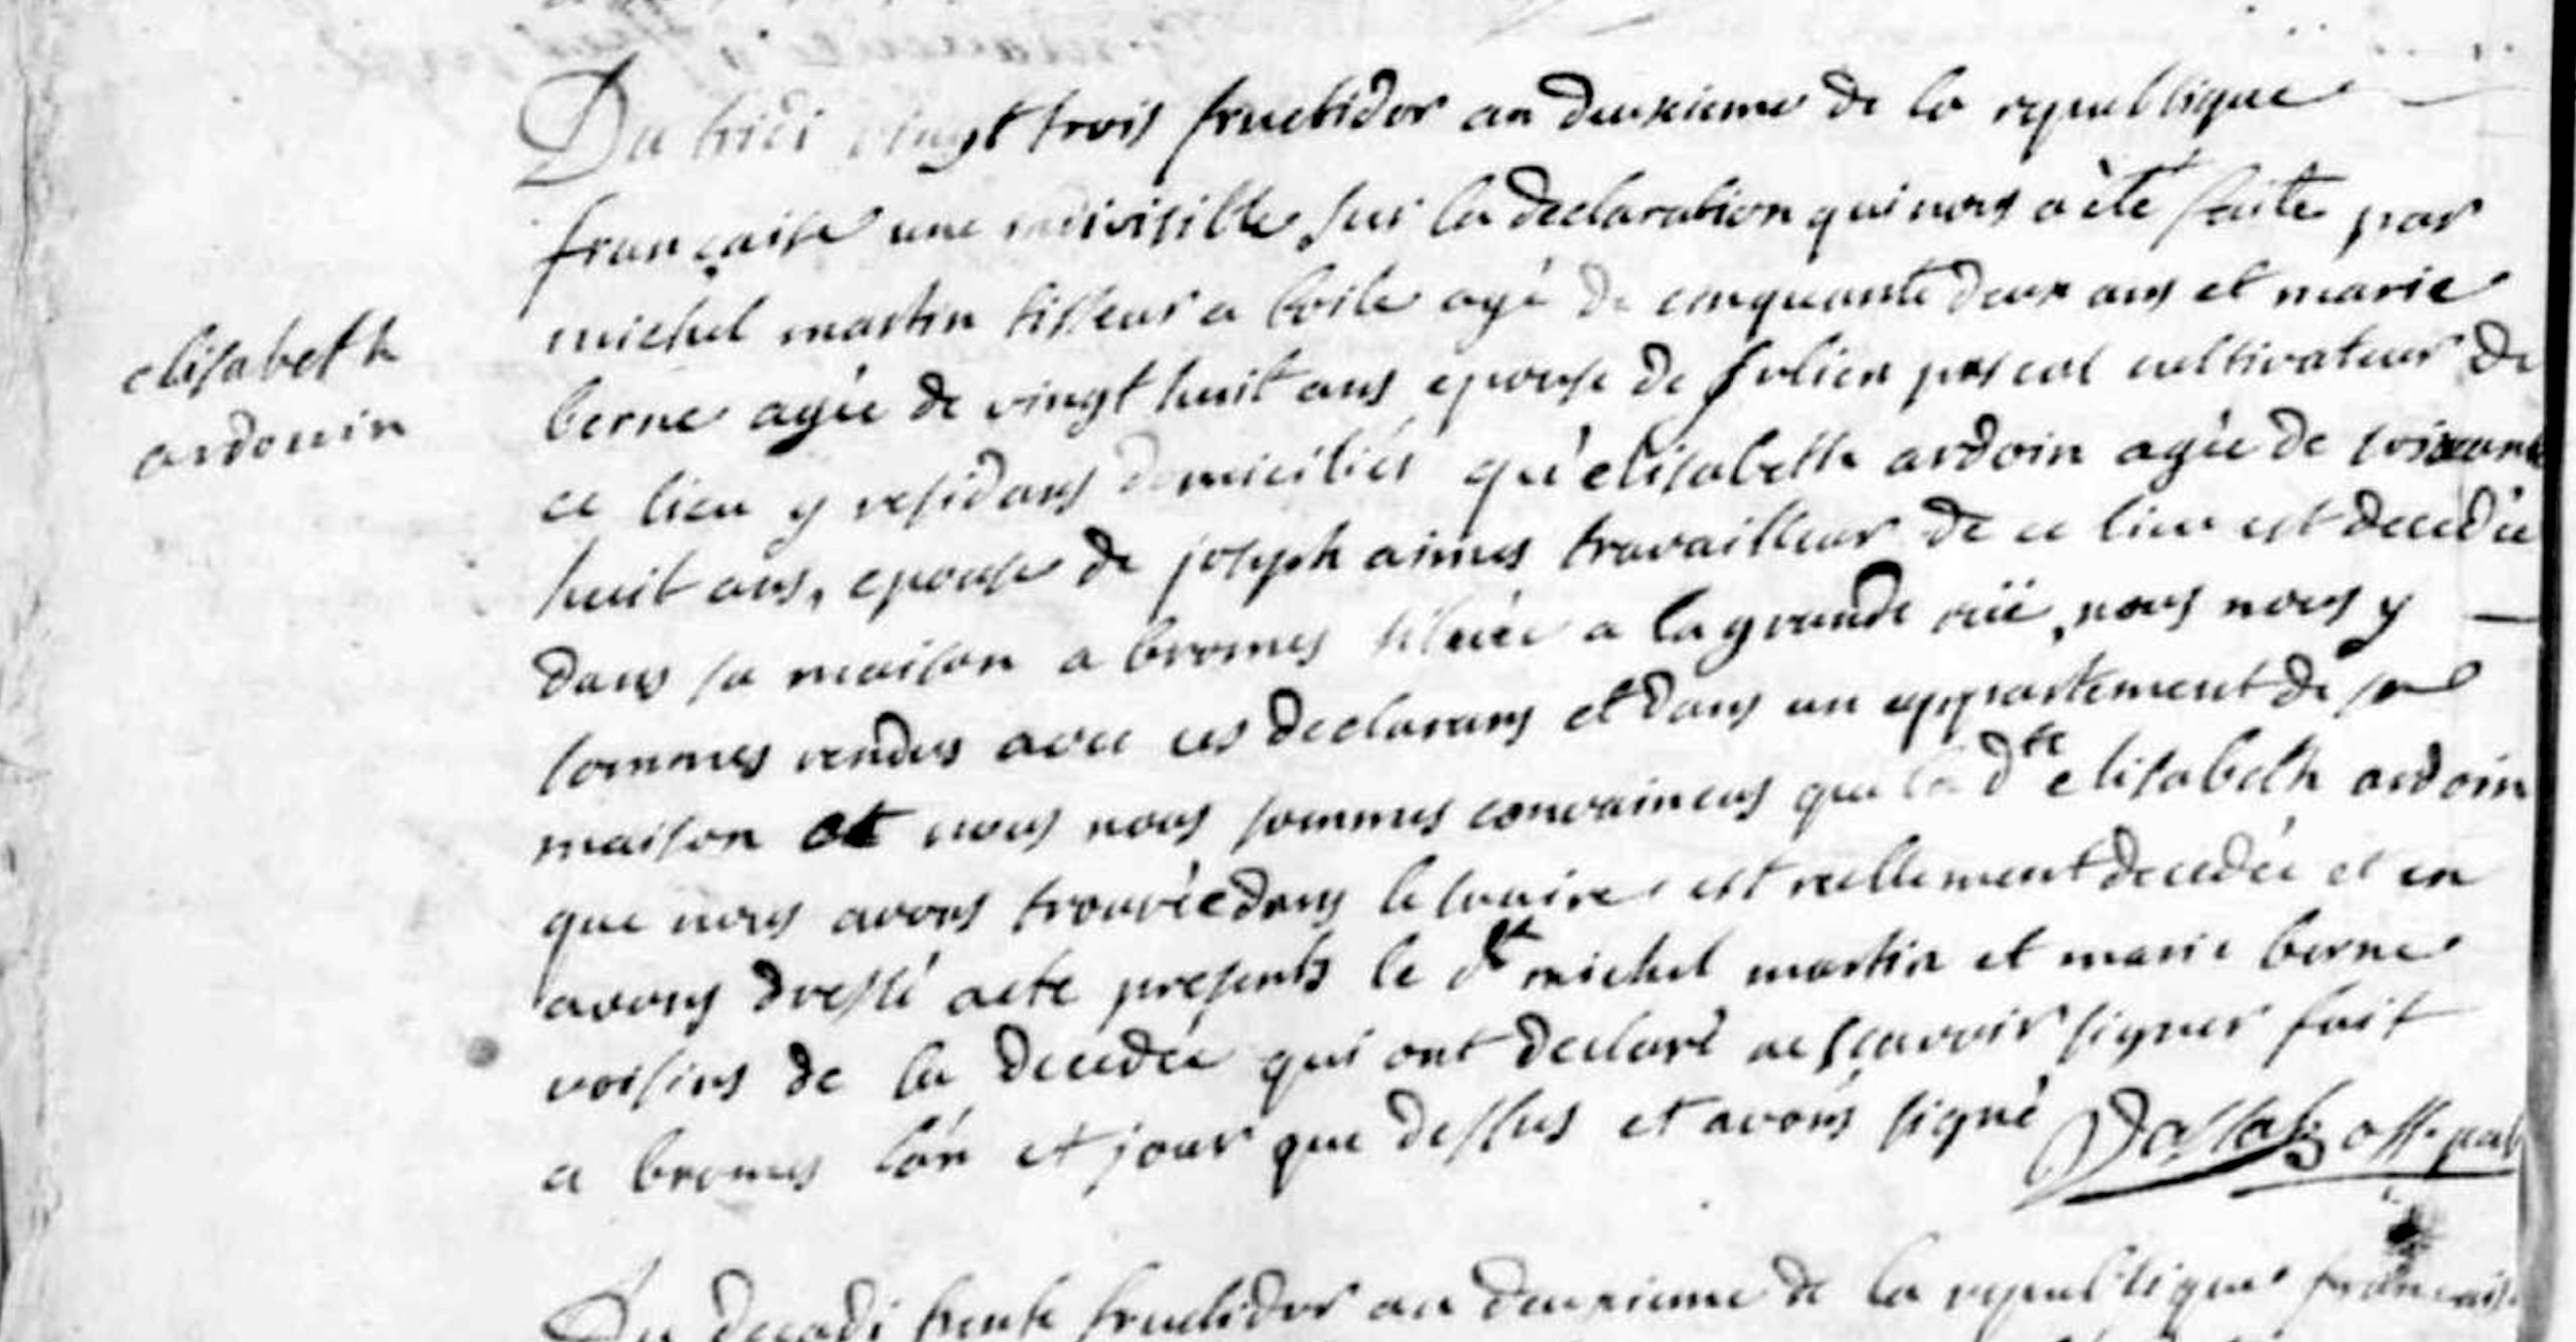 elisabeth
ardouin
Du tridi vingt trois fructidor an deuxieme de la republique
française une indivisible sur la declaration qui nous a èté faite par
michel martin tisseur a toile agé de cinquante deux ans et marie
berne agée de vingt huit ans epouse de julien pascal cultivateur de
ce lieu y residans domiciliés qu'elisabeth ardoin agée de soixante
huit ans, epouse de joseph aimes travailleur de ce lieu est decedée
dans sa maison a bromes située a la grande rüe, nous nous y
sommes rendus avec ces declarans et dans un appartement de sa
maison et nous nous sommes convaincus que la dte elisabeth ardoin
que nous avons trouvée dans le suaire est reellement decedée et en
avons dressé acte presents le dt michel martin et marie berne
voisins de la decedée qui ont declaré ne sçavoir signer fait
a bromes l'an et jour que dessus et avons signé off. pub
Du decadi trente fructidor an deuxieme de la republique francais